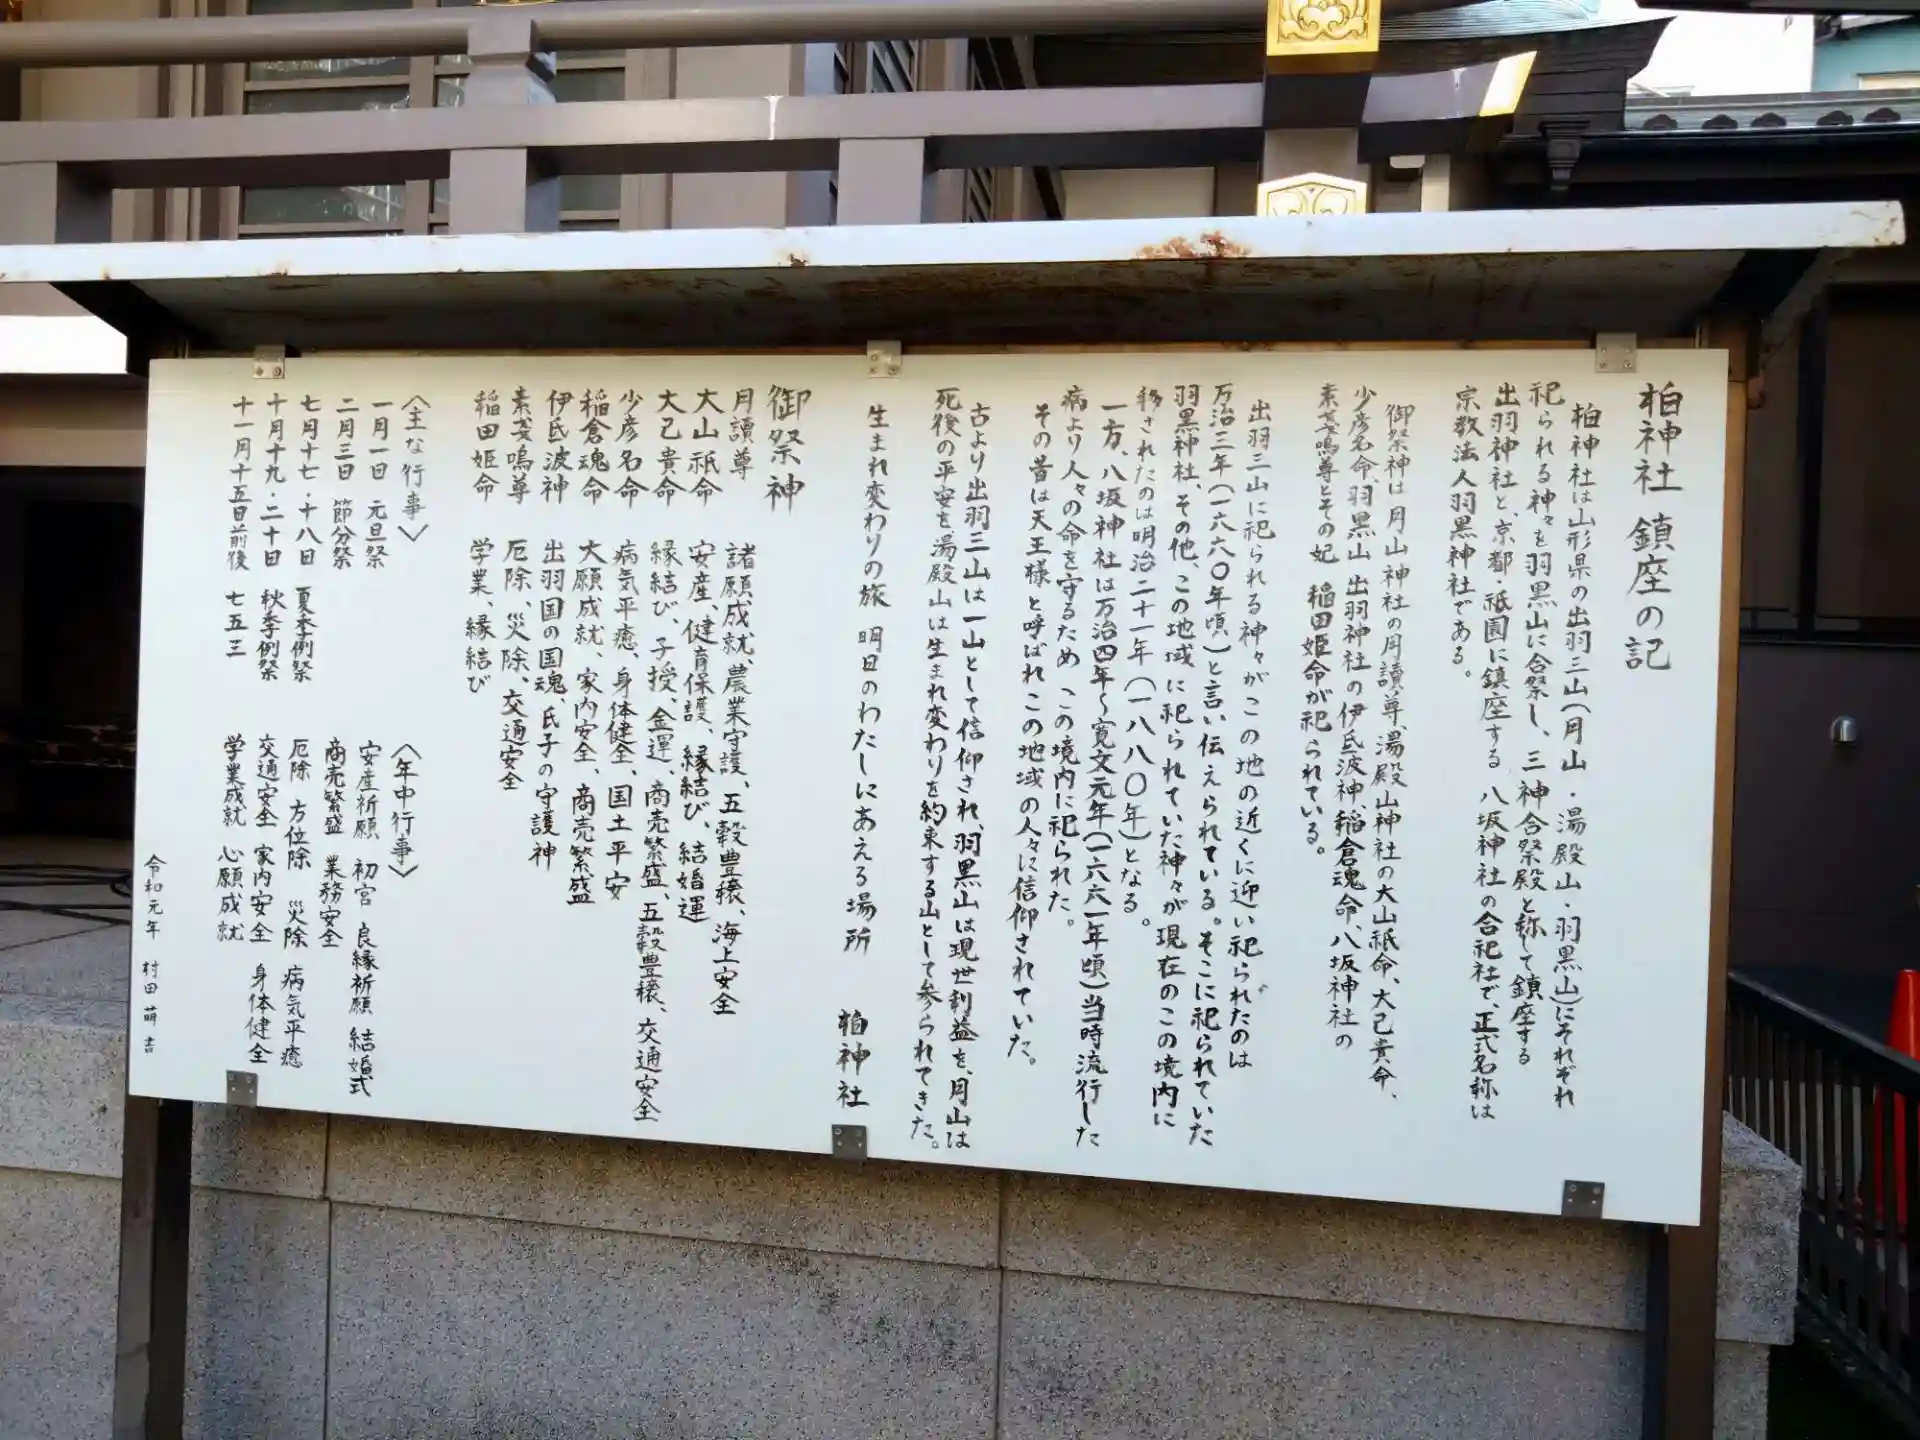 柏神社 鎮座の記
柏神社は山形県の出羽三山(月山・湯殿山・羽黒山)にそれぞれ
祀られる神々を羽黒山に合祭し、三神合祭殿と称して鎮座する
出羽神社と、京都・祇園に鎮座する 八坂神社の合祀社で、正式名称は
宗教法人羽黒神社である。
御祭神は月山神社の月讀尊、湯殿山神社の大山祇命、大己貴命、
少彦名命、羽黒山 出羽神社の伊氐波神、稲倉魂命、八坂神社の
素戔嗚尊とその妃 稲田姫命が祀られている。
出羽三山に祀られる神々がこの地の近くに迎い祀られたのは
万治三年(一六六〇年頃)と言い伝えられている。そこに祀られていた
羽黒神社、その他、この地域に祀られていた神々が現在のこの境内に
移されたのは明治二十一年(一八八〇年)となる。
一方、八坂神社は万治四年〜寛文元年(一六六一年頃)当時流行した
病より人々の命を守るため この境内に祀られた。
その昔は天王様と呼ばれこの地域の人々に信仰されていた。
古より出羽三山は一山として信仰され、羽黒山は現世利益を、月山は
死後の平安を、湯殿山は生まれ変わりを約束する山として参られてきた。
生まれ変わりの旅 明日のわたしにあえる場所 柏神社
御祭神
月讀尊 諸願成就、農業守護、五穀豊穣、海上安全
大山祇命 安産、健育保護、縁結び、結婚運
大己貴命 縁結び、子授、金運、商売繁盛、五穀豊穣、交通安全
少彦名命 病気平癒、身体健全、国土平安
稲倉魂命 大願成就、家内安全、商売繁盛
伊氐波神 出羽国の国魂、氏子の守護神
素戔嗚尊 厄除、災除、交通安全
稲田姫命 学業、縁結び
〈主な行事〉
一月一日 元旦祭
二月三日 節分祭
七月十七・十八日 夏季例祭
十月十九・二十日 秋季例祭
十一月十五日前後 七五三
〈年中行事〉
安産祈願 初宮 良縁祈願 結婚式
商売繁盛 業務安全
厄除 方位除 災除 病気平癒
交通安全 家内安全 身体健全
学業成就 心願成就
令和元年 村田